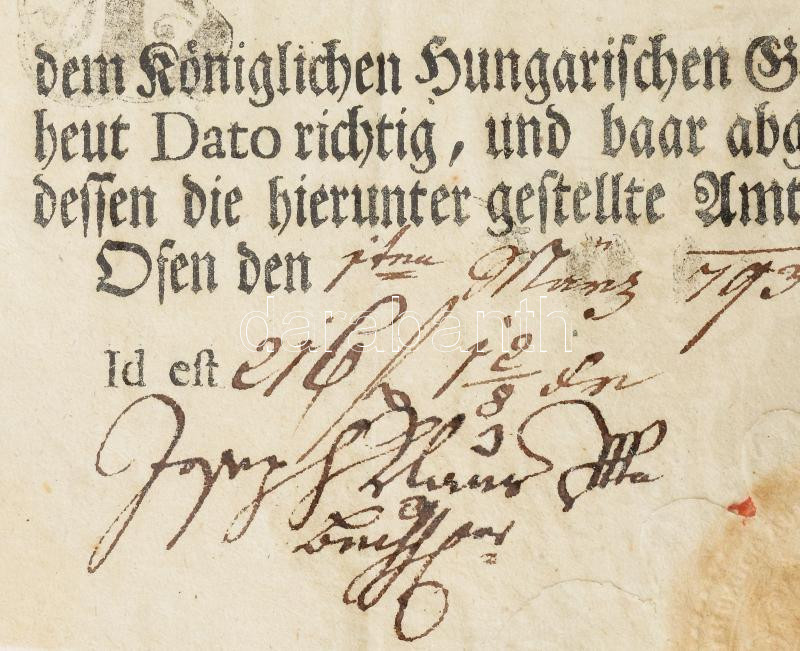 dem Königlichen Hungarischen G
heut Dato richtig, und baar abg
dessen die hierunter gestellte Amt
Ofen den 1ten März 793
Id est 216
Joseph
darabanth